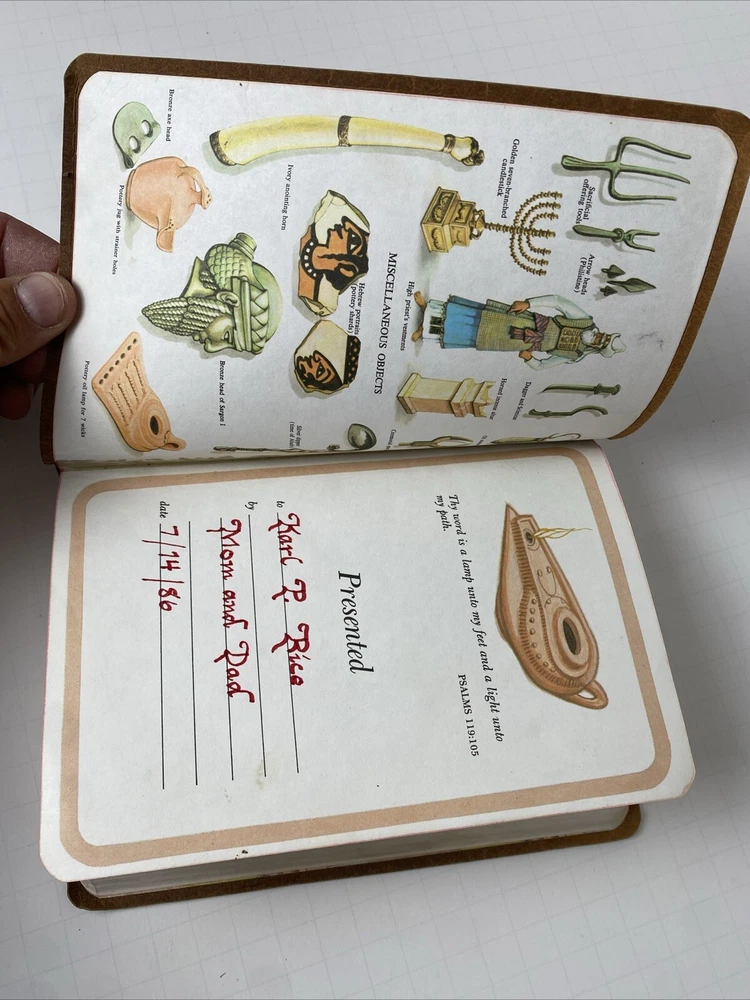 Sacrificial
offering tools
Arrow heads
(Philistine)
Dagger and Scimitar
Golden seven-branched
candlestick
High priest's vestments
Horned incense altar
MISCELLANEOUS OBJECTS
Ivory anointing horn
Hebrew portraits
(pottery shards)
Silver dipper
Bronze axe head
Pottery jug with strainer holes
Bronze head of Sargon I
Pottery oil lamp for 7 wicks
Thy word is a lamp unto my feet and a light unto
my path.
PSALMS 119:105
Presented
to Karl P. Rice
by Mom and Dad
date 7/14/86